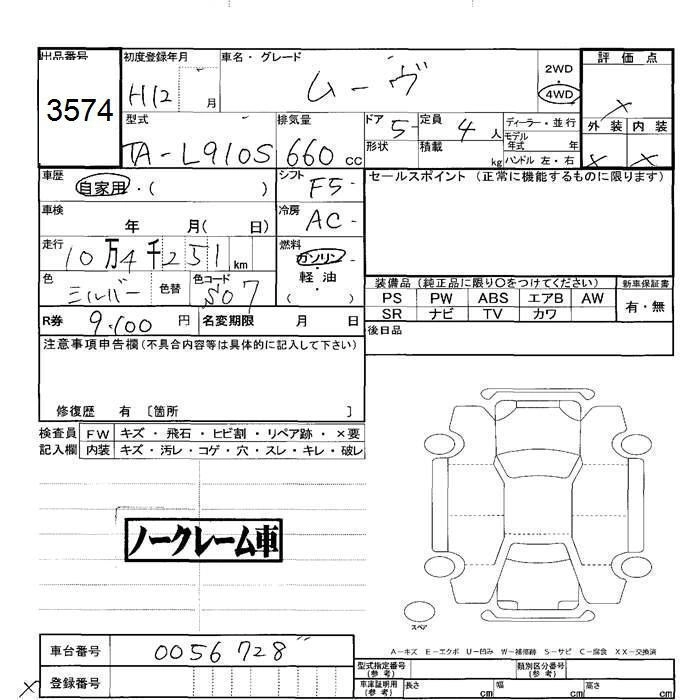 出品番号 初度登録年月 車名・グレード 2WD 評価点
3574 H12 月 ムーヴ 4WD ×
型式 排気量 ドア 5 定員 4 人 ディーラー・並行 外装 内装
TA-L910S 660 cc 形状 積載 kg モデル年式 年 × ×
ハンドル 左・右
車歴 自家用・( ) シフト F5 セールスポイント (正常に機能するものに限ります)
車検 年 月( 日) 冷房 AC
走行 10万4千251 km 燃料 ガソリン・軽油・( )
色 シルバー 色替 色コード S07 装備品 (純正品に限り○をつけてください) 新車保証書
PS PW ABS エアB AW 有・無
R券 9.100 円 名変期限 月 日 SR ナビ TV カワ
注意事項申告欄(不具合内容等は具体的に記入して下さい) 後日品
修復歴 有 〔箇所 〕
検査員 FW キズ・飛石・ヒビ割・リペア跡・×要
記入欄 内装 キズ・汚レ・コゲ・穴・スレ・キレ・破レ
ノークレーム車
スペア
A-キズ E-エクボ U-凹み W-補修跡 S-サビ C-腐食 XX-交換済
車台番号 0056728
型式指定番号(参考) 類別区分番号(参考)
× 登録番号 車庫証明用(参考) 長さ cm 幅 cm 高さ cm